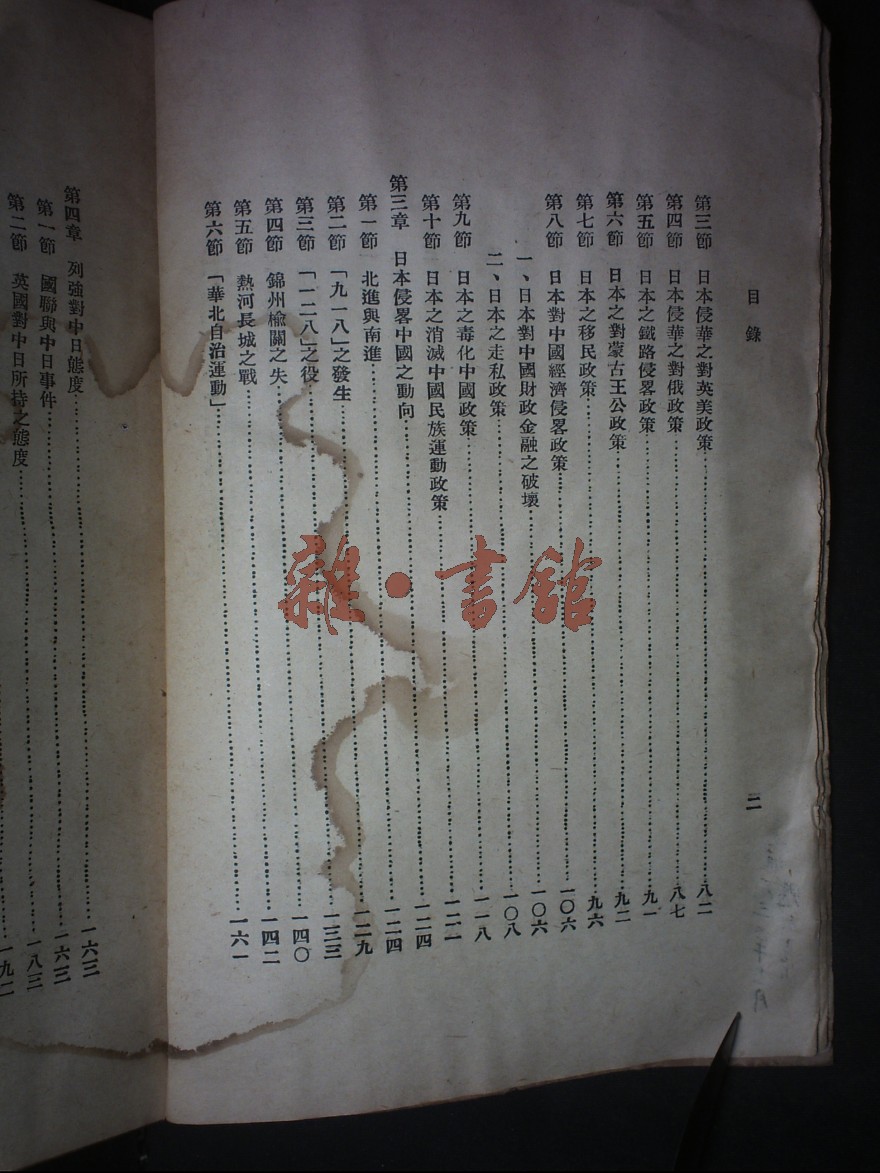 目錄
二
第三節 日本侵華之對英美政策……八二
第四節 日本侵華之對俄政策……八七
第五節 日本之鐵路侵畧政策……九一
第六節 日本之對蒙古王公政策……九二
第七節 日本之移民政策……九六
第八節 日本對中國經濟侵畧政策……一〇六
一、日本對中國財政金融之破壞……一〇六
二、日本之走私政策……一〇八
第九節 日本之毒化中國政策……一一八
第十節 日本之消滅中國民族運動政策……一二一
第三章 日本侵畧中國之動向……一二四
第一節 北進與南進……一二四
第二節 「九一八」之發生……一二九
第三節 「一二八」之役……一三三
第四節 錦州榆關之失……一四〇
第五節 熱河長城之戰……一四二
第六節 「華北自治運動」……一六一
第四章 列強對中日態度……一六三
第一節 國聯與中日事件……一六三
第二節 英國對中日所持之態度……一八三
一九二
雜·書館